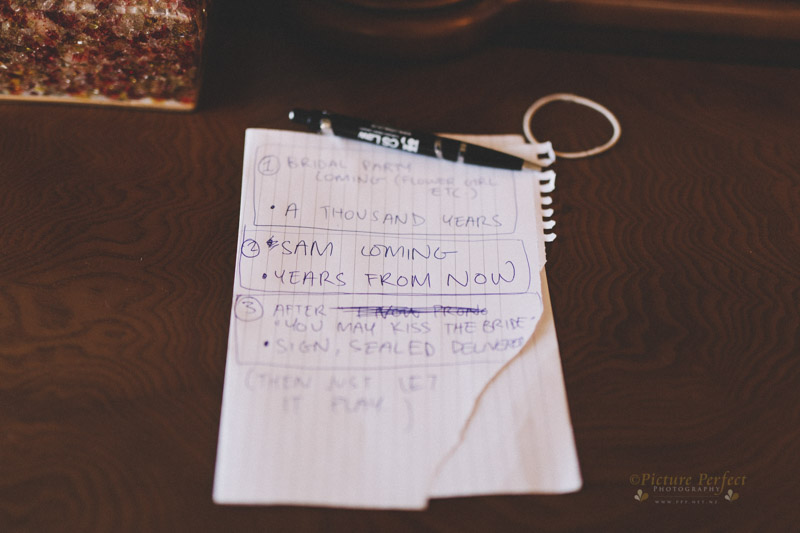 CS Law
① BRIDAL PARTY
COMING (FLOWER GIRL
ETC.)
• A THOUSAND YEARS
② SAM COMING
• YEARS FROM NOW
③ AFTER
"YOU MAY KISS THE BRIDE"
• SIGN, SEALED DELIVERED
(THEN JUST LET
IT PLAY)
©Picture Perfect
PHOTOGRAPHY